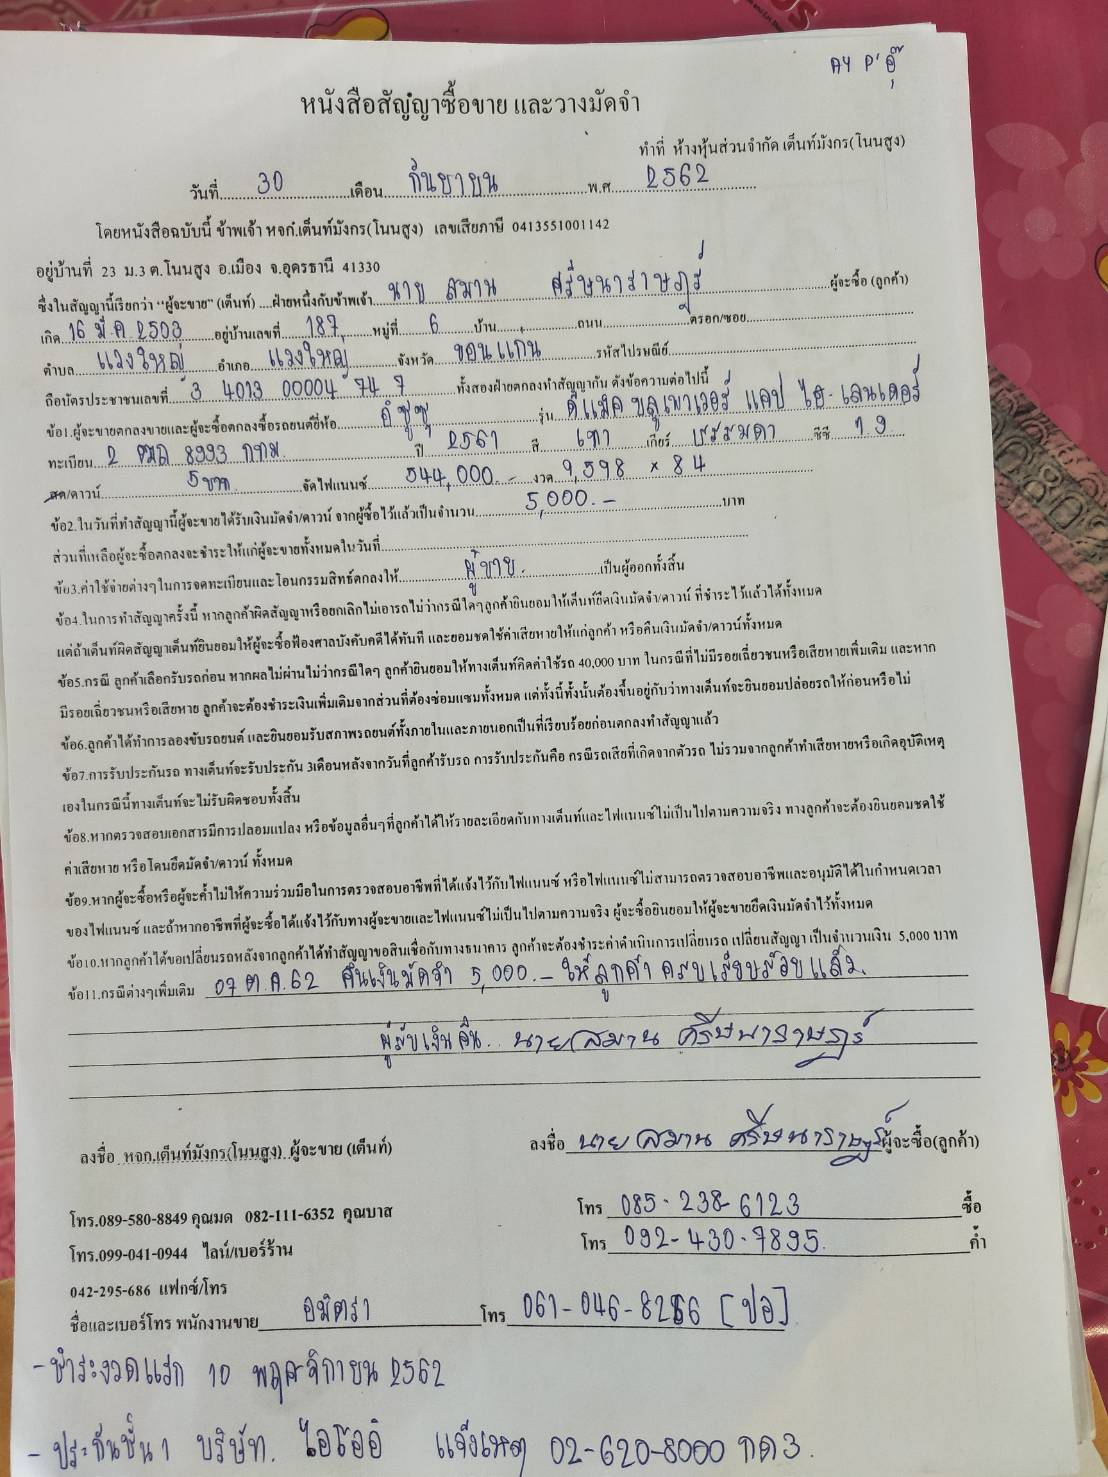 AY P'อุ๊
หนังสือสัญญาซื้อขาย และวางมัดจำ
ทำที่ ห้างหุ้นส่วนจำกัด เต็นท์มังกร(โนนสูง)
วันที่ 30 เดือน กันยายน พ.ศ 2562
โดยหนังสือฉบับนี้ ข้าพเจ้า หจก.เต็นท์มังกร(โนนสูง) เลขเสียภาษี 0413551001142
อยู่บ้านที่ 23 ม.3 ต.โนนสูง อ.เมือง จ.อุดรธานี 41330
ซึ่งในสัญญานี้เรียกว่า "ผู้จะขาย" (เต็นท์) ....ฝ่ายหนึ่งกับข้าพเจ้า นาย สมาน ศรีษนาราษฎร์ ผู้จะซื้อ (ลูกค้า)
เกิด 16 มี.ค 2503 อยู่บ้านเลขที่ 187 หมู่ที่ 6 บ้าน ถนน ตรอก/ซอย
ตำบล แวงใหญ่ อำเภอ แวงใหญ่ จังหวัด ขอนแก่น รหัสไปรษณีย์
ถือบัตรประชาชนเลขที่ 3 4013 00004 74 7 ทั้งสองฝ่ายตกลงทำสัญญากัน ดังข้อความต่อไปนี้
ข้อ1.ผู้จะขายตกลงขายและผู้จะซื้อตกลงซื้อรถยนต์ยี่ห้อ อีซูซุ รุ่น ดีแม็ค บลูเพาเวอร์ แคป ไฮ-เลนเดอร์
ทะเบียน 2 ฒฌ 8993 กทม. ปี 2561 สี เทา เกียร์ ธรรมดา ซีซี 1.9
สด/ดาวน์ 5 บาท จัดไฟแนนซ์ 544,000.- งวด 9,598 × 84
ข้อ2.ในวันที่ทำสัญญานี้ผู้จะขายได้รับเงินมัดจำ/ดาวน์ จากผู้ซื้อไว้แล้วเป็นจำนวน 5,000.- บาท
ส่วนที่เหลือผู้จะซื้อตกลงจะชำระให้แก่ผู้จะขายทั้งหมดในวันที่
ข้อ3.ค่าใช้จ่ายต่างๆในการจดทะเบียนและโอนกรรมสิทธ์ตกลงให้ ผู้ขาย. เป็นผู้ออกทั้งสิ้น
ข้อ4.ในการทำสัญญาครั้งนี้ หากลูกค้าผิดสัญญาหรือยกเลิกไม่เอารถไม่ว่ากรณีใดๆลูกค้ายินยอมให้เต็นท์ยึดเงินมัดจำ/ดาวน์ ที่ชำระไว้แล้วได้ทั้งหมด
แต่ถ้าเต็นท์ผิดสัญญาเต็นท์ยินยอมให้ผู้จะซื้อฟ้องศาลบังคับคดีได้ทันที และยอมชดใช้ค่าเสียหายให้แก่ลูกค้า หรือคืนเงินมัดจำ/ดาวน์ทั้งหมด
ข้อ5.กรณี ลูกค้าเลือกรับรถก่อน หากผลไม่ผ่านไม่ว่ากรณีใดๆ ลูกค้ายินยอมให้ทางเต็นท์คิดค่าใช้รถ 40,000 บาท ในกรณีที่ไม่มีรอยเฉี่ยวชนหรือเสียหายเพิ่มเติม และหาก
มีรอยเฉี่ยวชนหรือเสียหาย ลูกค้าจะต้องชำระเงินเพิ่มเติมจากส่วนที่ต้องซ่อมแซมทั้งหมด แต่ทั้งนี้ทั้งนั้นต้องขึ้นอยู่กับว่าทางเต็นท์จะยินยอมปล่อยรถให้ก่อนหรือไม่
ข้อ6.ลูกค้าได้ทำการลองขับรถยนต์ และยินยอมรับสภาพรถยนต์ทั้งภายในและภายนอกเป็นที่เรียบร้อยก่อนตกลงทำสัญญาแล้ว
ข้อ7.การรับประกันรถ ทางเต็นท์จะรับประกัน 3เดือนหลังจากวันที่ลูกค้ารับรถ การรับประกันคือ กรณีรถเสียที่เกิดจากตัวรถ ไม่รวมจากลูกค้าทำเสียหายหรือเกิดอุบัติเหตุ
เองในกรณีนี้ทางเต็นท์จะไม่รับผิดชอบทั้งสิ้น
ข้อ8.หากตรวจสอบเอกสารมีการปลอมแปลง หรือข้อมูลอื่นๆที่ลูกค้าได้ให้รายละเอียดกับทางเต็นท์และไฟแนนซ์ไม่เป็นไปตามความจริง ทางลูกค้าจะต้องยินยอมชดใช้
ค่าเสียหาย หรือโดนยึดมัดจำ/ดาวน์ ทั้งหมด
ข้อ9.หากผู้จะซื้อหรือผู้จะค้ำไม่ให้ความร่วมมือในการตรวจสอบอาชีพที่ได้แจ้งไว้กับไฟแนนซ์ หรือไฟแนนซ์ไม่สามารถตรวจสอบอาชีพและอนุมัติได้ในกำหนดเวลา
ของไฟแนนซ์ และถ้าหากอาชีพที่ผู้จะซื้อได้แจ้งไว้กับทางผู้จะขายและไฟแนนซ์ไม่เป็นไปตามความจริง ผู้จะซื้อยินยอมให้ผู้จะขายยึดเงินมัดจำไว้ทั้งหมด
ข้อ10.หากลูกค้าได้ขอเปลี่ยนรถหลังจากลูกค้าได้ทำสัญญาขอสินเชื่อกับทางธนาคาร ลูกค้าจะต้องชำระค่าดำเนินการเปลี่ยนรถ เปลี่ยนสัญญา เป็นจำนวนเงิน 5,000 บาท
ข้อ11.กรณีต่างๆเพิ่มเติม 07 ต.ค.62 คืนเงินมัดจำ 5,000.- ให้ลูกค้า ครบเรียบร้อยแล้ว.
ผู้รับเงินคืน.. นายสมาน ศรีษนาราษฎร์
ลงชื่อ หจก.เต็นท์มังกร(โนนสูง) ผู้จะขาย (เต็นท์) ลงชื่อ นาย สมาน ศรีษนาราษฎร์ ผู้จะซื้อ(ลูกค้า)
โทร.089-580-8849 คุณมด 082-111-6352 คุณบาส โทร 085-238-6123 ซื้อ
โทร.099-041-0944 ไลน์/เบอร์ร้าน โทร 092-430-7895. ค้ำ
042-295-686 แฟกซ์/โทร
ชื่อและเบอร์โทร พนักงานขาย อมิตรา โทร 061-046-8266 [ปอ]
- ชำระงวดแรก 10 พฤศจิกายน 2562
- ประกันชั้น 1 บริษัท. ไอโออิ แจ้งเหตุ 02-620-8000 กด 3.